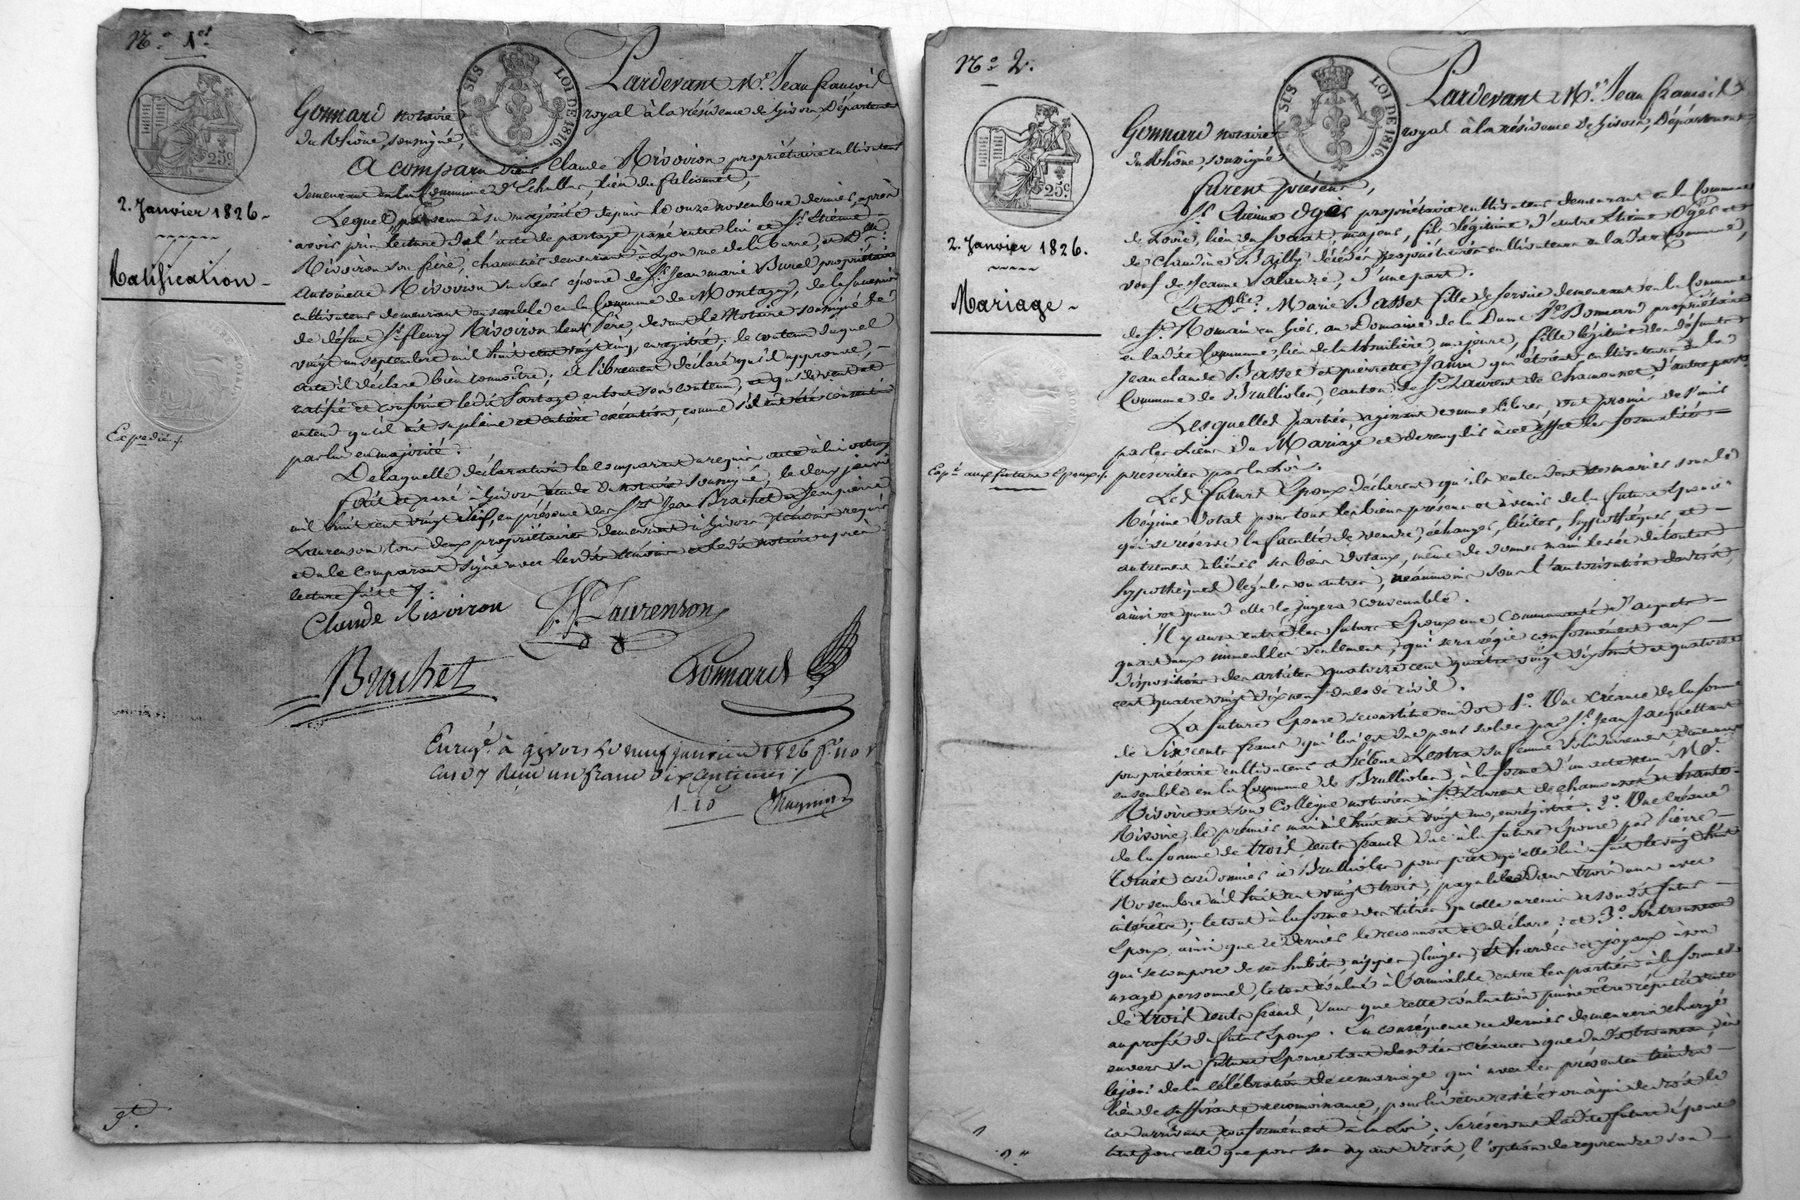 N.o 1er
25c
SIS LOI DE 1816
Pardevant Me. Jean françois
Gonnard notaire royal à la résidence de Givors, Département
du Rhône, soussigné,
A comparu Claude Rivoiron propriétaire cultivateur
demeurant en la Commune d'Echallas lieu du falconnet,
2. Janvier 1826.
Ratification
Lequel à sa majorité depuis le onze novembre dernier, après
avoir pris lecture de l'acte de partage passé entre lui et Sr. Etienne
Rivoiron son frère, demeurant à Lyon rue et Dlle.
Antoinette Rivoiron sa sœur épouse de Sr. Jean marie Burel propriétaire
cultivateur demeurant ensemble en la Commune de Montagny, de la succession
de défunt Sr. fleury Rivoiron leur père, devant le Notaire soussigné le
vingt un septembre mil huit cent vingt cinq, enregistré; le contenu duquel
acte il déclare bien connoître; a librement déclaré qu'il approuve,
ratifie et confirme ledit Partage en tout son contenu, et qu'il veut et
entend qu'il ait sa pleine et entière exécution, comme s'il eut été consenti
par lui en majorité.
Expédié
De laquelle déclaration le comparant a requis acte à lui octroyé
fait et passé à Givors étude du notaire soussigné, le deux janvier
mil huit cent vingt six, en présence des Srs. Jean Brachet et Jean pierre
Laurenson tous deux propriétaires demeurant à Givors témoins requis
et le comparant signé avec lesdits témoins et ledit notaire après
lecture faite
Claude Rivoiron J.P. Laurenson
Brachet Gonnard
Enregé. à Givors le neuf janvier 1826 fo. 110
case 7 Reçu un franc dix centimes
1..10
N.o 2.
25c
SIS LOI DE 1816.
Pardevant Me. Jean françois
Gonnard notaire royal à la résidence de Givors, Département
du Rhône, soussigné
furent présens,
Sr. Etienne Ogier propriétaire cultivateur demeurant en la Commune
de Loire, lieu du majeur, fils légitime d'autre Etienne Ogier et
de Claudine Bailly décédée propriétaires cultivateurs en la dite Commune,
veuf de Jeanne d'une part.
2. Janvier 1826.
Mariage
Et Dlle. Marie Basset fille de service demeurant en la Commune
de St. Romain en Giès, au Domaine de la Dame Ve. Bonnard propriétaire
en ladite Commune, lieu de la majeure, fille légitime de défunts
Jean claude Basset et pierrette Janin qui étoient cultivateurs en la
Commune de Brulliolles, canton de St. Laurent de Chamousset, d'autre part.
Lesquelles parties, agissant comme libres, ont promis de s'unir
par les liens du Mariage et de remplir à cet effet les formalités
prescrites par la loi.
Expé. aux futurs Epoux
Les futurs Epoux déclarent qu'ils entendent se marier sous le
Régime dotal pour tous les biens présens et à venir de la future Epouse
qui se réserve la faculté de vendre, échanger, liciter, hypothéquer et
autrement aliéner ses biens dotaux, même de donner main levée de toutes
hypothèques légales ou autres, néanmoins sous l'autorisation
ainsi et quand elle le jugera convenable.
Il y aura entre les futurs Epoux une Communauté d'acquets
quant aux immeubles seulement, qui sera régie conformément aux
dispositions des articles quatorze cent quatre vingt dix huit et quatorze
cent quatre vingt dix neuf du code civil.
La future Epouse se constitue en dot 1o. Une créance de la somme
de Six cents francs qui lui est due par Sr. Jean Jacquettant
propriétaire cultivateur et Hélène Lestra sa femme solidairement demeurant
ensemble en la Commune de Brulliolles, à la forme d'un acte reçu Me.
Rivoire et son Collègue notaires à St. Laurent de chamousset
Rivoire, le premier mai mil huit cent vingt un, enregistré: 2o. Une créance
de la somme de trois cents francs due à la future Epouse par Pierre
cordonnier à Brulliolles pour prêt qu'elle lui a fait le vingt huit
Novembre mil huit cent vingt trois, payable dans trois ans avec
intérêts; le tout à la forme des titres qu'elle a remis à son dit futur
Epoux ainsi que ce dernier le reconnoit et déclare: et 3o. Son trousseau
qui se compose de ses habits, linges, et hardes et joyaux à son
usage personnel, le tout évalué à l'amiable entre les parties à la somme
de trois cents francs, sans que cette évaluation puisse être réputée vente
au profit du futur Epoux. En conséquence ce dernier demeurera chargé
envers sa future Epouse tant desdites créances que dudit trousseau, dès
le jour de la célébration de ce mariage qui avec les présentes tiendra
lieu de suffisante reconnoissance, pour lui être restitué ou à qui de droit le
cas arrivant, conformément à la Loi. Se réservant ladite future épouse
tant pour elle que pour ses ayant droit, l'option de reprendre son